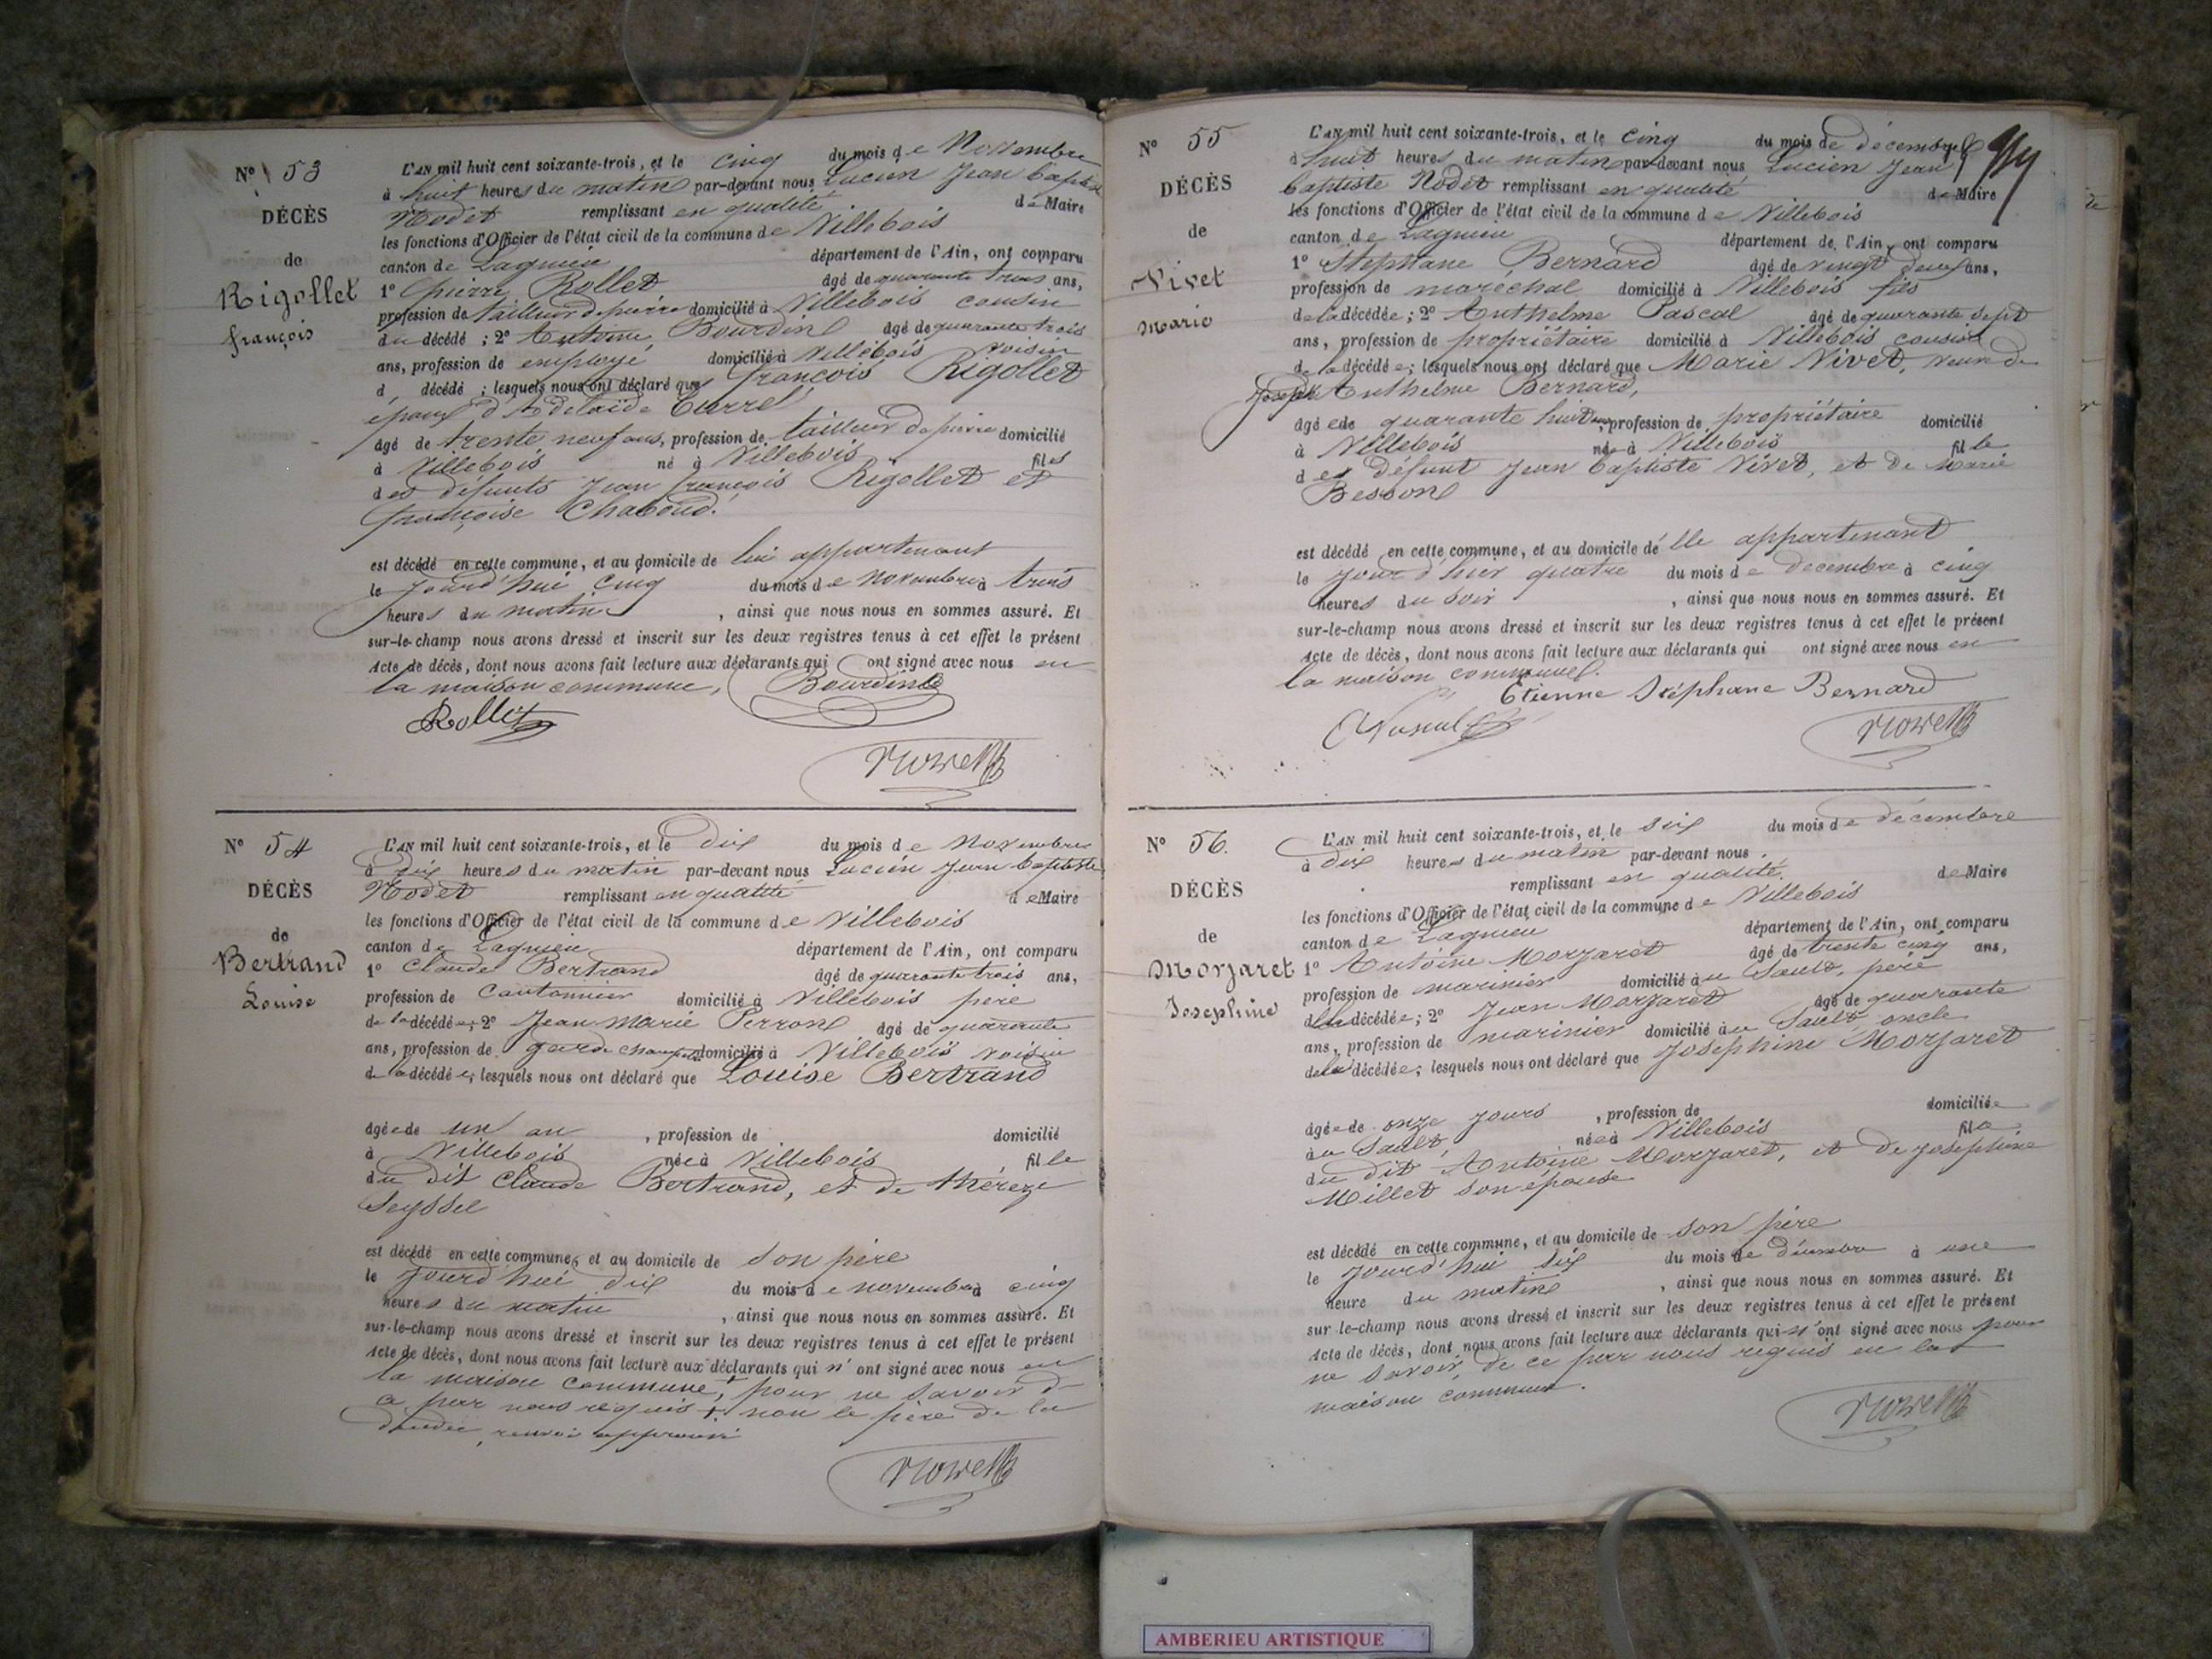 N° 53
DÉCÈS
de
Rigollet
françois
L'AN mil huit cent soixante-trois, et le cinq du mois de Novembre
à huit heures du matin par-devant nous Lucien Jean baptiste
Nodet remplissant en qualité de Maire
les fonctions d'Officier de l'état civil de la commune de Villebois
canton de Lagnieu département de l'Ain, ont comparu
1° pierre Rollet âgé de quarante trois ans,
profession de tailleur de pierre domicilié à Villebois cousin
du décédé ; 2° Antoine Bourdin âgé de quarante trois
ans, profession de employé domicilié à Villebois voisin
d décédé ; lesquels nous ont déclaré que françois Rigollet
époux d'Adelaïde Currel
âgé de trente neuf ans, profession de tailleur de pierre domicilié
à Villebois né à Villebois fils
des défunts Jean françois Rigollet et
françoise Chaboud.
est décédé en cette commune, et au domicile de lui appartenant
le jourd'hui cinq du mois de novembre à trois
heures du matin , ainsi que nous nous en sommes assuré. Et
sur-le-champ nous avons dressé et inscrit sur les deux registres tenus à cet effet le présent
Acte de décès, dont nous avons fait lecture aux déclarants qui ont signé avec nous en
la maison commune, Bourdin
Rollet
N° 54
DÉCÈS
de
Bertrand
Louise
L'AN mil huit cent soixante-trois, et le dix du mois de Novembre
à dix heures du matin par-devant nous Lucien Jean baptiste
Nodet remplissant en qualité de Maire
les fonctions d'Officier de l'état civil de la commune de Villebois
canton de Lagnieu département de l'Ain, ont comparu
1° Claude Bertrand âgé de quarante trois ans,
profession de Cantonnier domicilié à Villebois père
de la décédée; 2° Jean Marie Perron âgé de quarante
ans, profession de garde champetre domicilié à Villebois voisin
de la décédée; lesquels nous ont déclaré que Louise Bertrand
âgée de un an , profession de domicilié
à Villebois née à Villebois fille
du dit Claude Bertrand, et de thérèze
Seyssel
est décédé en cette commune, et au domicile de son père
le jourd'hui dix du mois de novembre à cinq
heures du matin , ainsi que nous nous en sommes assuré. Et
sur-le-champ nous avons dressé et inscrit sur les deux registres tenus à cet effet le présent
Acte de décès, dont nous avons fait lecture aux déclarants qui n'ont signé avec nous en
la maison commune, + pour ne savoir de
ce par nous requis + non le père de la
décédée, renvoi approuvé
N° 55
DÉCÈS
de
Vivet
Marie
L'AN mil huit cent soixante-trois, et le cinq du mois de décembre
à huit heures du matin par-devant nous Lucien Jean
baptiste Nodet remplissant en qualité de Maire
les fonctions d'Officier de l'état civil de la commune de Villebois
canton de Lagnieu département de l'Ain, ont comparu
1° Stephane Bernard âgé de vingt deux ans,
profession de maréchal domicilié à Villebois fils
de la décédée; 2° Anthelme Pascal âgé de quarante sept
ans, profession de propriétaire domicilié à Villebois cousin
de la décédée; lesquels nous ont déclaré que Marie Vivet, veuve de
Joseph Anthelme Bernard,
âgée de quarante huit ans, profession de propriétaire domicilié
à Villebois née à Villebois fille
de défunt Jean baptiste Vivet, et de Marie
Besson
est décédé en cette commune, et au domicile de elle appartenant
le jour d'hier quatre du mois de decembre à cinq
heures du soir , ainsi que nous nous en sommes assuré. Et
sur-le-champ nous avons dressé et inscrit sur les deux registres tenus à cet effet le présent
Acte de décès, dont nous avons fait lecture aux déclarants qui ont signé avec nous en
la maison commune.
Etienne Stéphane Bernard
N° 56.
DÉCÈS
de
Morjaret
Josephine
L'AN mil huit cent soixante-trois, et le six du mois de décembre
à dix heures du matin par-devant nous
remplissant en qualité de Maire
les fonctions d'Officier de l'état civil de la commune de Villebois
canton de Lagnieu département de l'Ain, ont comparu
1° Antoine Morjaret âgé de trente cinq ans,
profession de marinier domicilié à au Sault, père
de la décédée; 2° Jean Morjaret âgé de quarante
ans, profession de marinier domicilié à au Sault, oncle
de la décédée; lesquels nous ont déclaré que Josephine Morjaret
âgée de onze jours , profession de domiciliée
au Sault, née à Villebois fille
du dit Antoine Morjaret, et de Josephine
Millet son épouse
est décédé en cette commune, et au domicile de son père
le jourd'hui six du mois de décembre à une
heure du matin , ainsi que nous nous en sommes assuré. Et
sur le-champ nous avons dressé et inscrit sur les deux registres tenus à cet effet le présent
Acte de décès, dont nous avons fait lecture aux déclarants qui n'ont signé avec nous pour
ne savoir, de ce par nous requis en la
maison commune.
AMBERIEU ARTISTIQUE